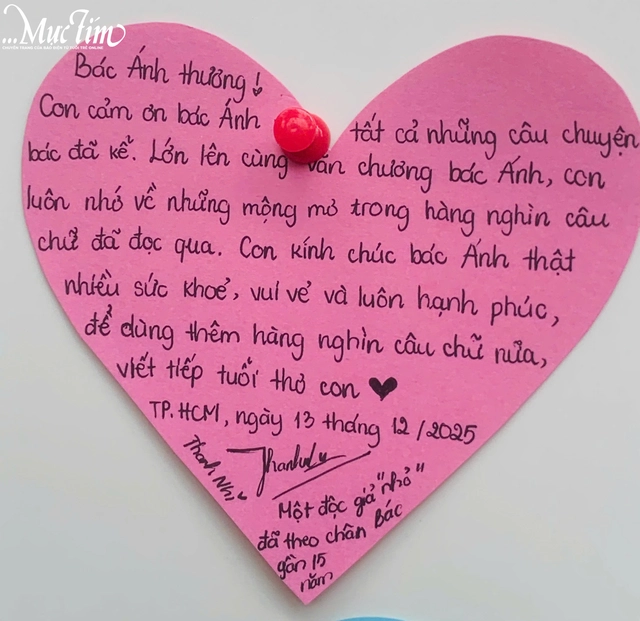 ...Mực Tím
CHUYÊN TRANG CỦA BÁO ĐIỆN TỬ TUỔI TRẺ ONLINE
Bác Ánh thương!
Con cảm ơn bác Ánh tất cả những câu chuyện
bác đã kể. Lớn lên cùng văn chương bác Ánh, con
luôn nhớ về những mộng mơ trong hàng nghìn câu
chữ đã đọc qua. Con kính chúc bác Ánh thật
nhiều sức khoẻ, vui vẻ và luôn hạnh phúc,
để dùng thêm hàng nghìn câu chữ nữa,
viết tiếp tuổi thơ con ♥
TP.HCM, ngày 13 tháng 12/2025
Thanh Nhi
Một độc giả "nhỏ"
đã theo chân Bác
gần 15
năm